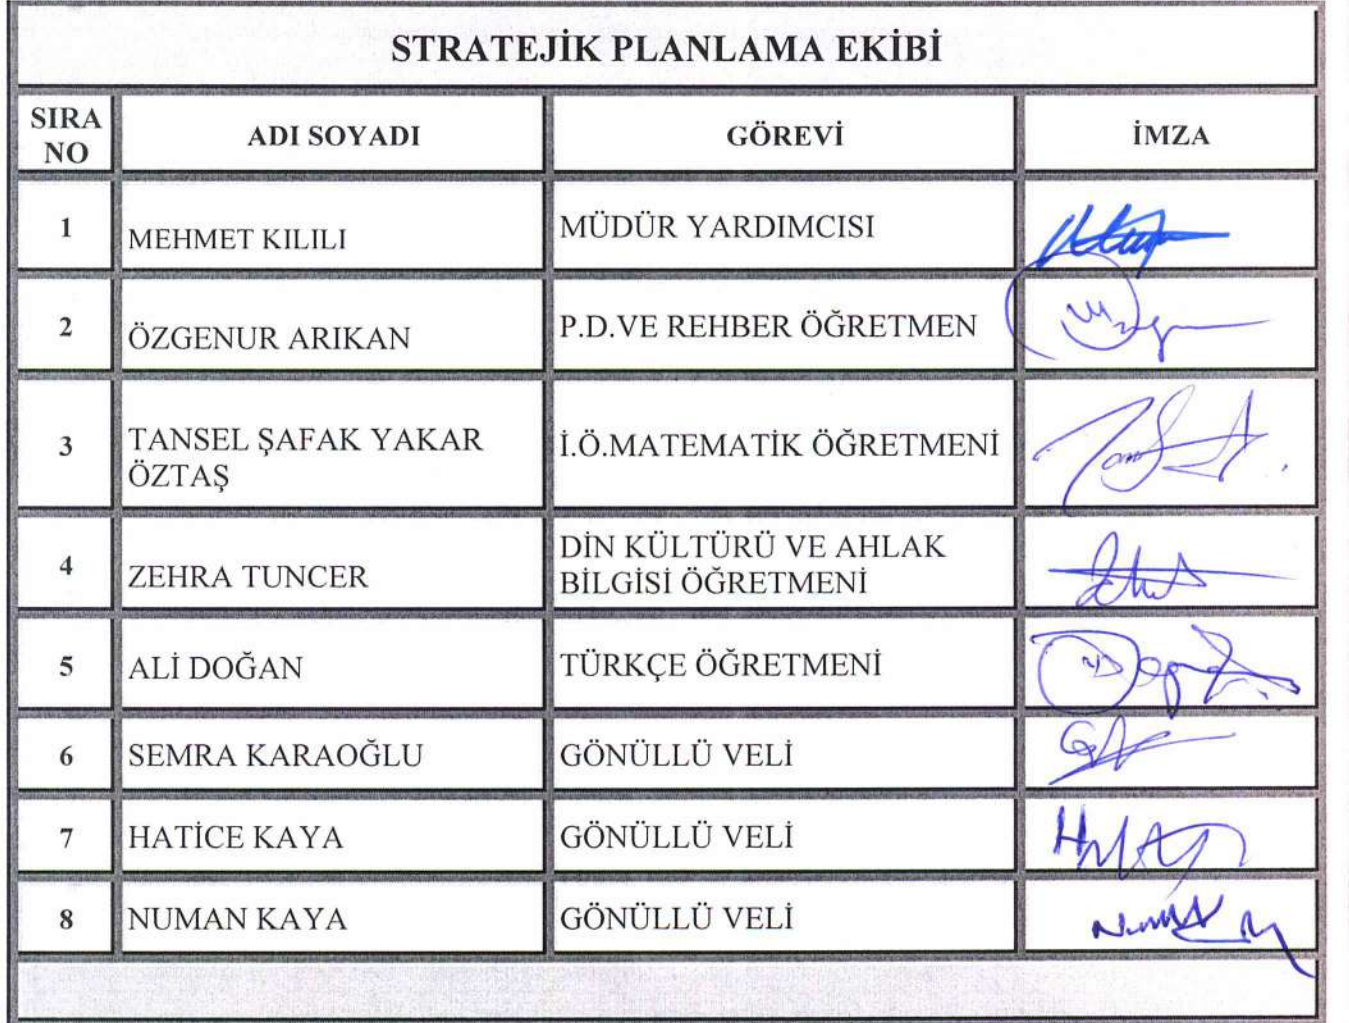 STRATEJİK PLANLAMA EKİBİ
SIRA NO
ADI SOYADI
GÖREVİ
İMZA
1
MEHMET KILILI
MÜDÜR YARDIMCISI
2
ÖZGENUR ARIKAN
P.D.VE REHBER ÖĞRETMEN
3
TANSEL ŞAFAK YAKAR
ÖZTAŞ
İ.Ö.MATEMATİK ÖĞRETMENİ
4
ZEHRA TUNCER
DİN KÜLTÜRÜ VE AHLAK
BİLGİSİ ÖĞRETMENİ
5
ALİ DOĞAN
TÜRKÇE ÖĞRETMENİ
6
SEMRA KARAOĞLU
GÖNÜLLÜ VELİ
7
HATİCE KAYA
GÖNÜLLÜ VELİ
8
NUMAN KAYA
GÖNÜLLÜ VELİ